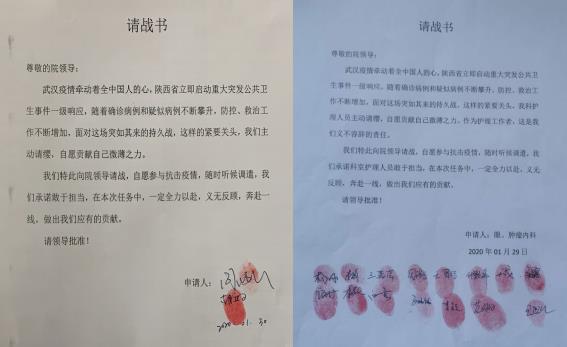 请战书
尊敬的院领导：
武汉疫情牵动着全中国人的心，陕西省立即启动重大突发公共卫
生事件一级响应，随着确诊病例和疑似病例不断攀升，防控、救治工
作不断增加，面对这场突如其来的持久战，这样的紧要关头，我们主
动请缨，自愿贡献自己微薄之力。
我们特此向院领导请战，自愿参与抗击疫情，随时听候调遣，我
们承诺敢于担当，在本次任务中，一定全力以赴，义无反顾，奔赴一
线，做出我们应有的贡献。
请领导批准！
申请人：
请战书
尊敬的院领导：
武汉疫情牵动着全中国人的心，陕西省立即启动重大突发公共卫
生事件一级响应，随着确诊病例和疑似病例不断攀升，防控、救治工作
不断增加，面对这场突如其来的持久战，这样的紧要关头，我科护
理人员主动请缨，自愿贡献自己微薄之力。作为护理工作者，这是我
们义不容辞的责任。
我们特此向院领导请战，自愿参与抗击疫情，随时听候调遣，我
们承诺科室护理人员敢于担当，在本次任务中，一定全力以赴，义无
反顾，奔赴一线，做出我们应有的贡献。
请领导批准！
申请人：眼、肿瘤内科
2020 年 01 月 29 日